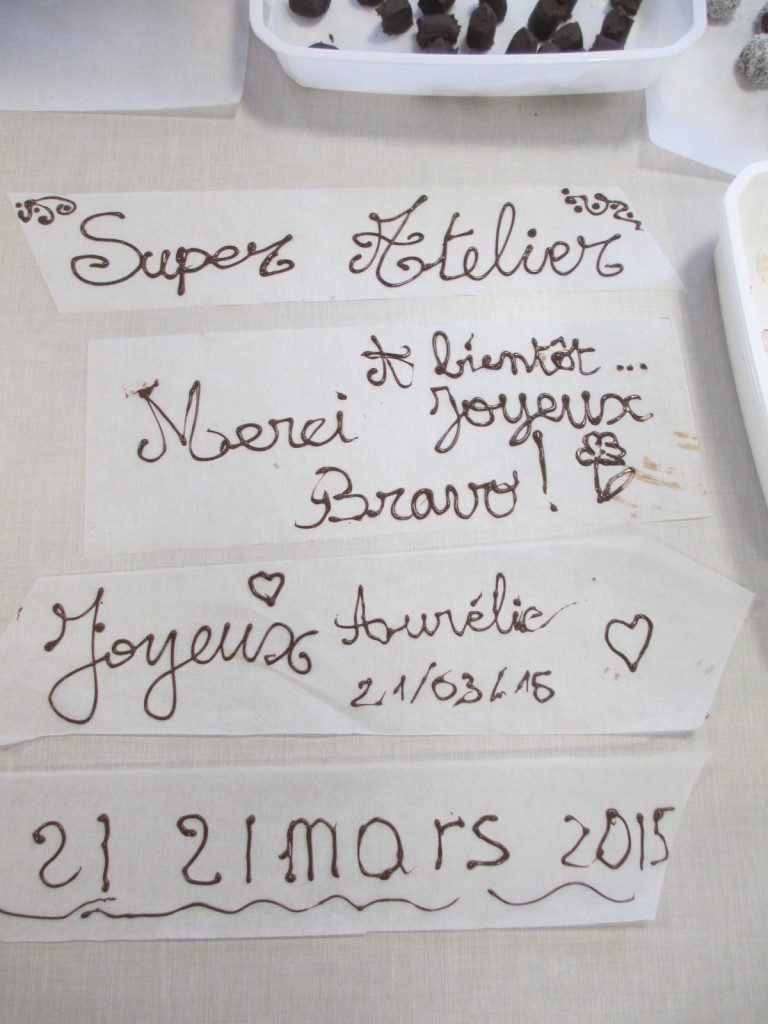 Super Atelier
A bientôt ...
Merci Joyeux
Bravo !
Joyeux Aurélie
21/03/15
21 21 mars 2015